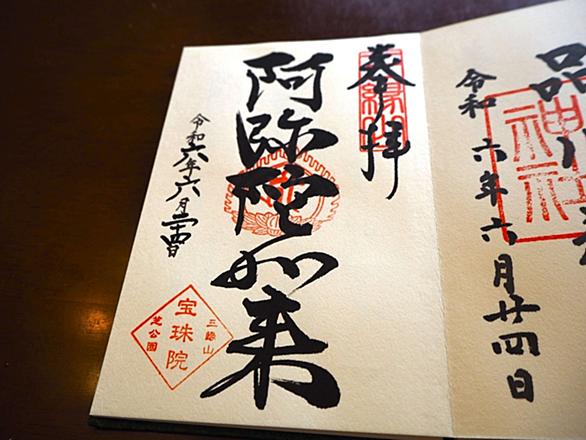 品
神社
令和六年六月廿四日
奉拝
阿弥陀如来
令和六年六月廿四日
三縁山
宝珠院
芝公園